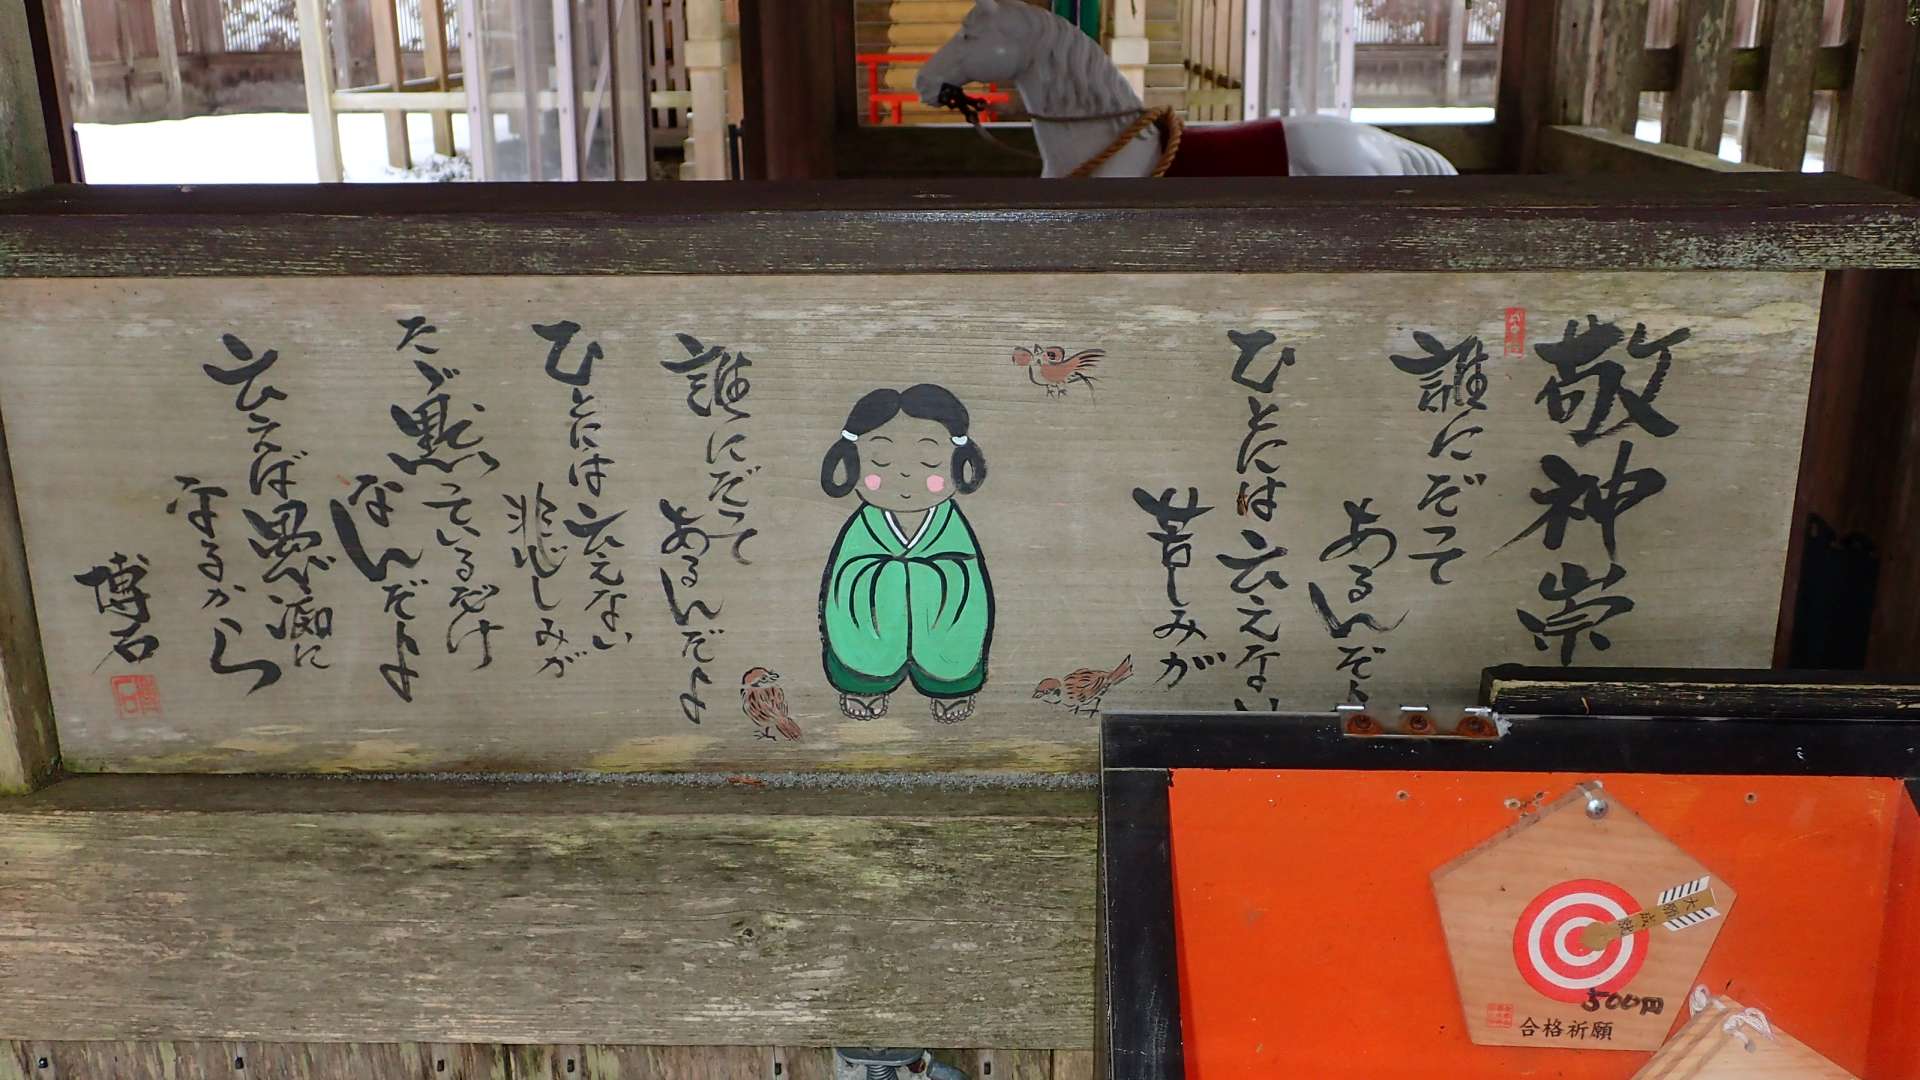 敬神崇
誰にだって
あるんだよ
ひとには云えない
苦しみが
誰にだって
あるんだよ
ひとには云えない
悲しみが
たゞ黙っているだけ
なんだよ
云えば愚痴に
なるから
博石
大願成就
500円
合格祈願